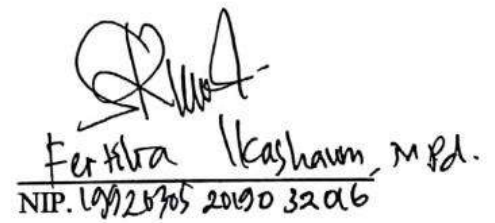 Fertilia Ikashaum, M.Pd.
NIP. 19920305 201903 2 016